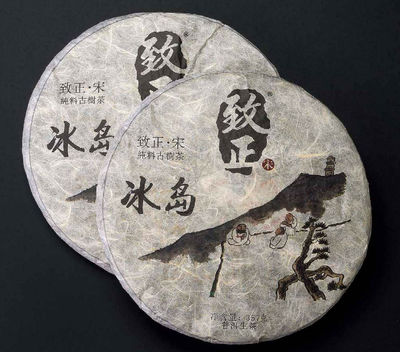 致正
®
致正·宋
純料古樹茶
冰岛
致正
®
宋
致正·宋
純料古樹茶
冰岛
净含量：357克
普洱生茶